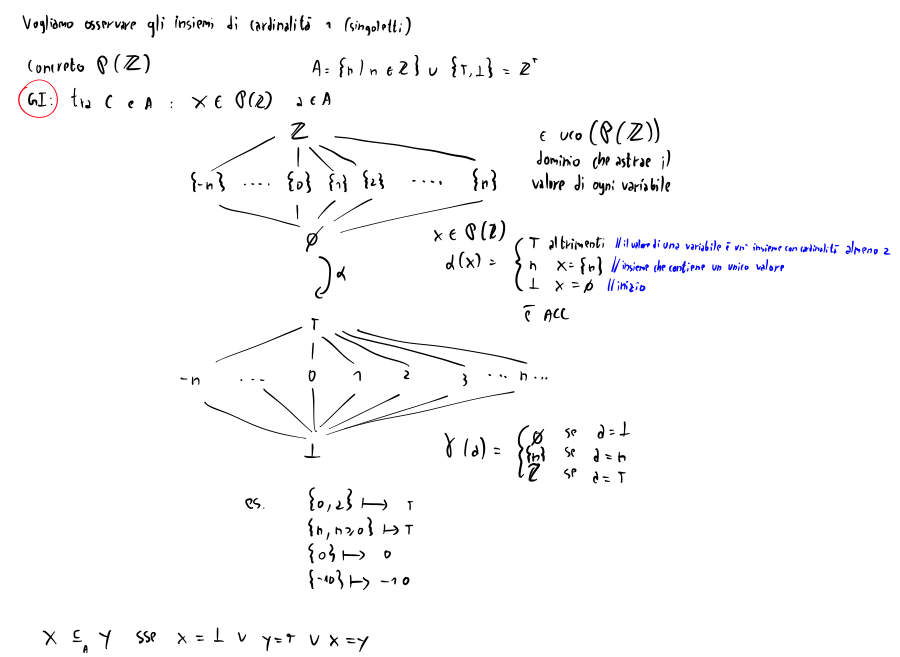 Vogliamo osservare gli insiemi di cardinalità 1 (singoletti)
Concreto ℘(ℤ)
A = {n | n ∈ ℤ} ∪ {⊤,⊥} = ℤ^⊤
GI: tra C e A : x ∈ ℘(ℤ) a ∈ A
ℤ
{-n} .... {0} {1} {2} .... {n}
∅
∈ uco (℘(ℤ))
dominio che astrae il
valore di ogni variabile
α
x ∈ ℘(ℤ)
α(x) = {
⊤ altrimenti // il valore di una variabile è un insieme con cardinalità almeno 2
n x = {n} // insieme che contiene un unico valore
⊥ x = ∅ // inizio
È ACC
⊤
-n ... 0 1 2 3 ... n ...
⊥
γ(a) = {
∅ se a = ⊥
{n} se a = n
ℤ se a = ⊤
es.
{0,2} ↦ ⊤
{n, n≥0} ↦ ⊤
{0} ↦ 0
{-10} ↦ -10
x ⊑_A y sse x = ⊥ ∨ y = ⊤ ∨ x = y